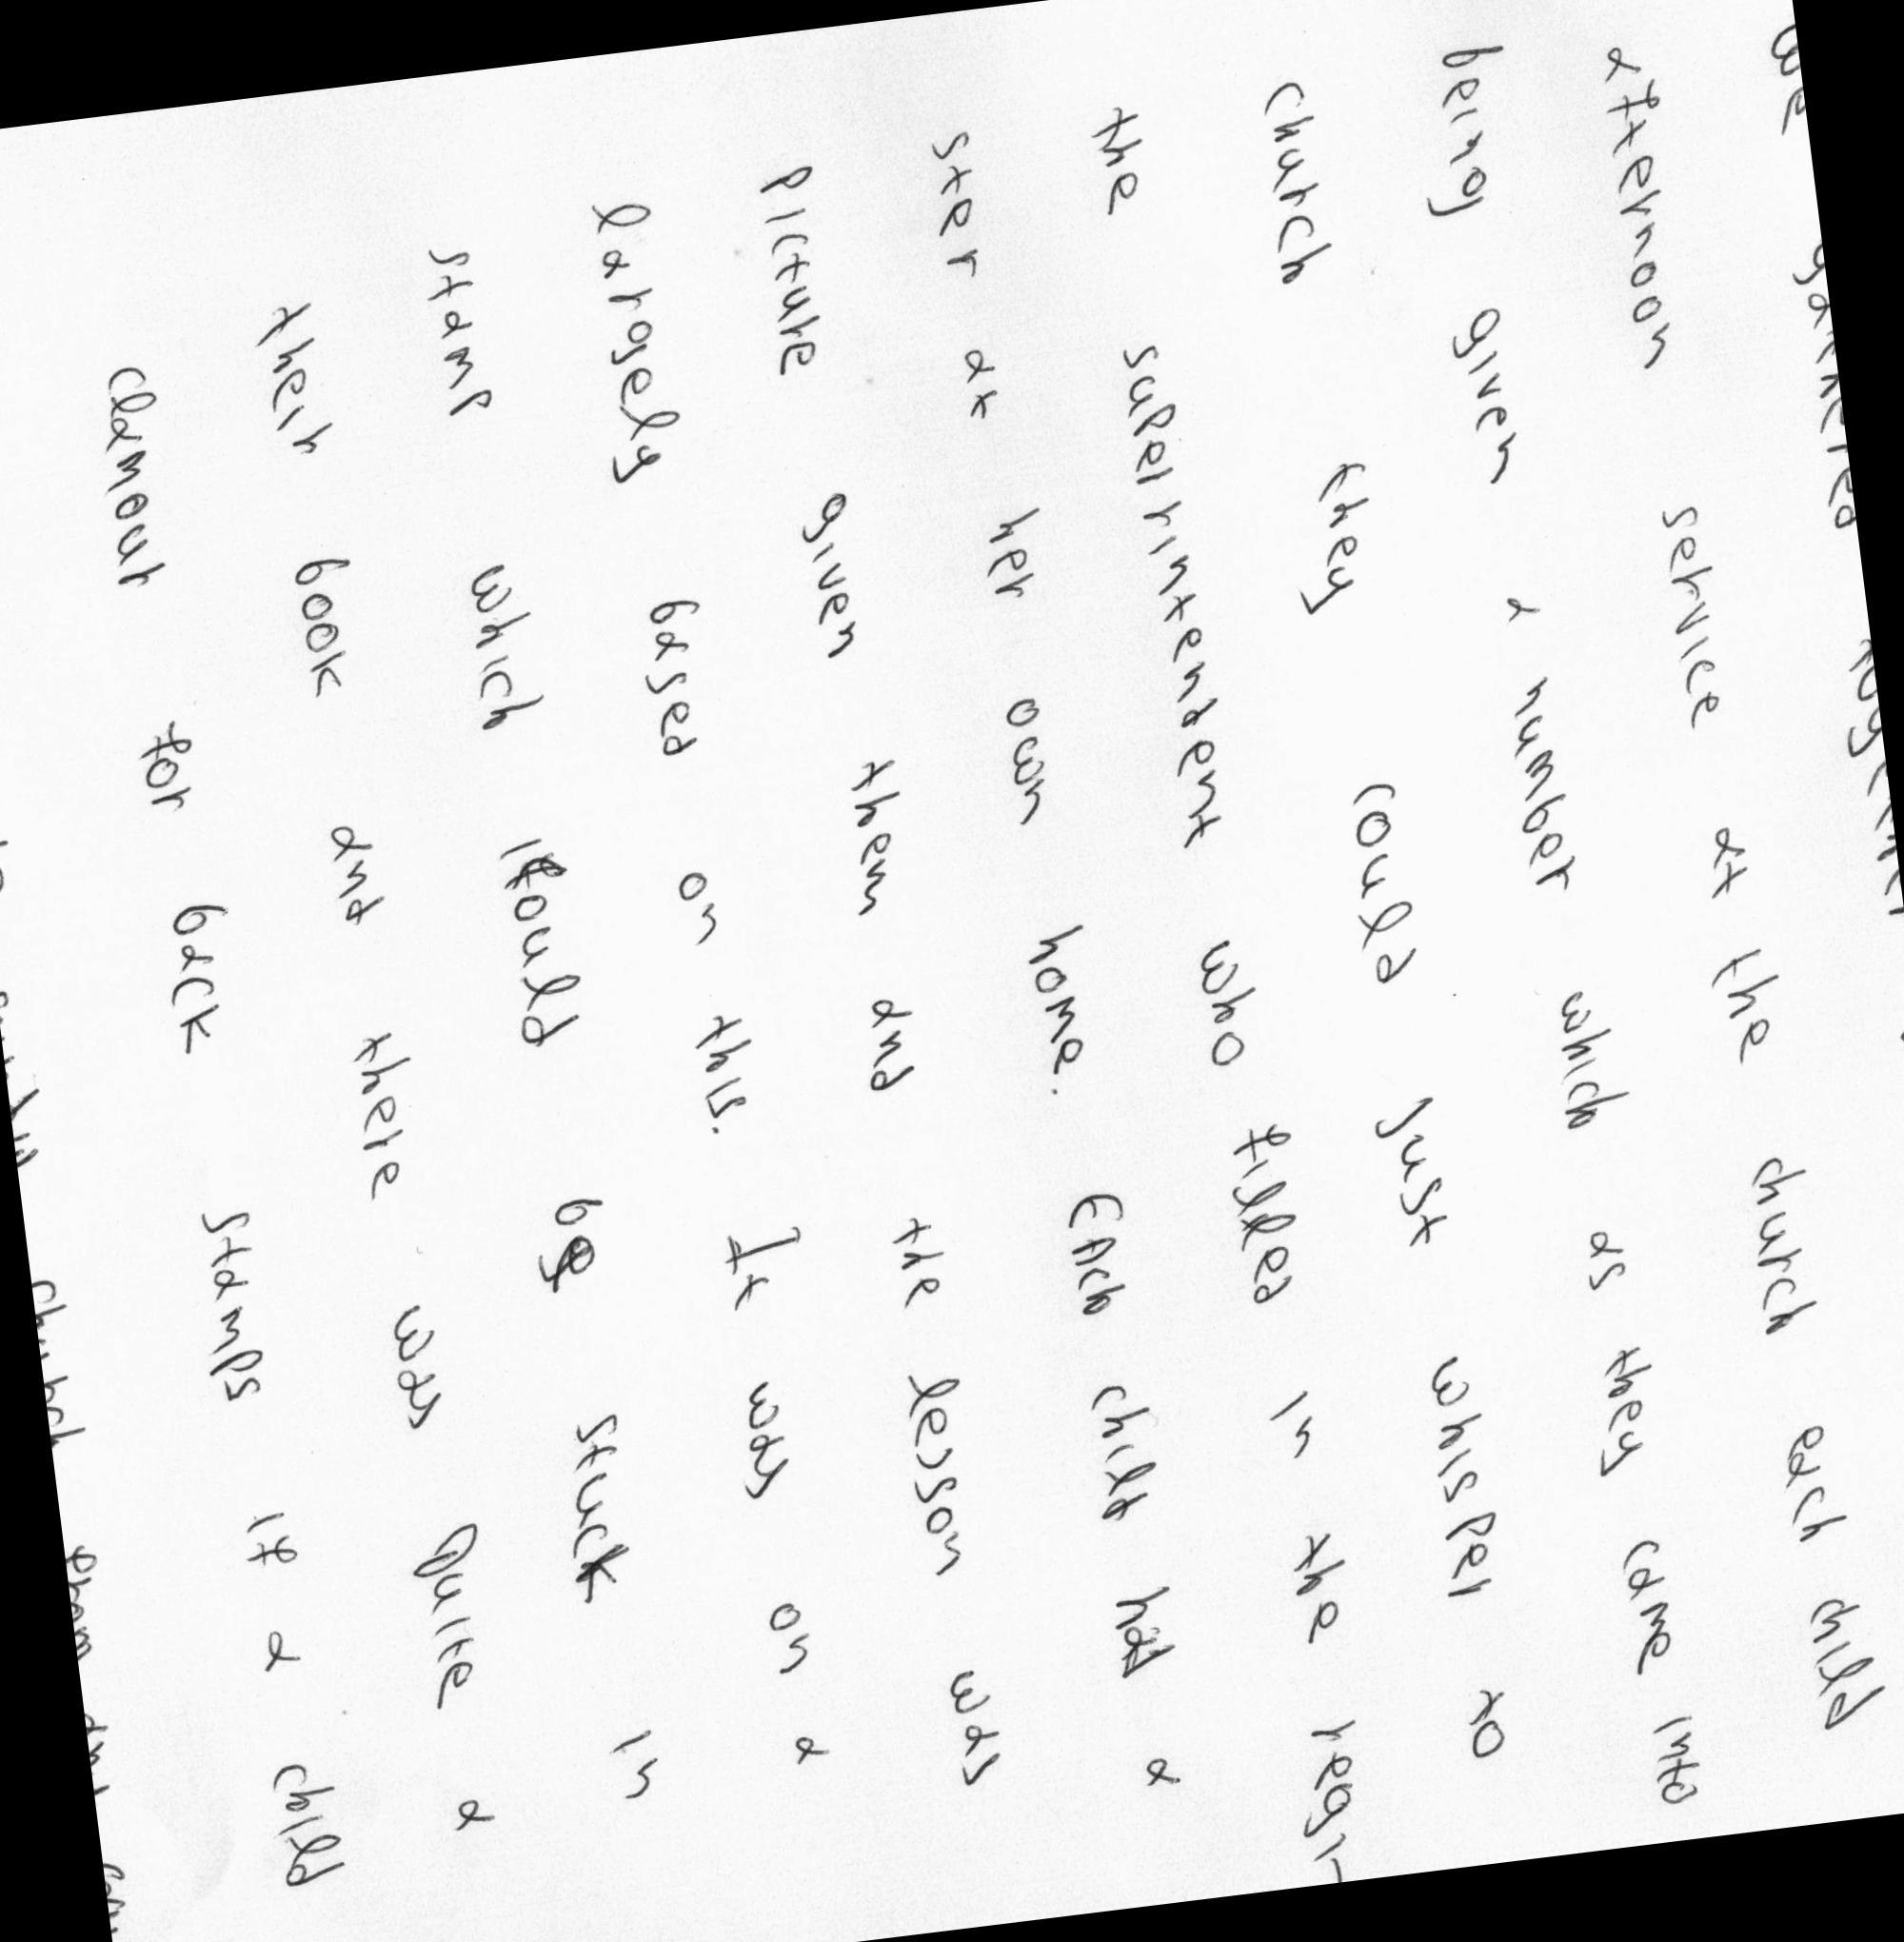 We gathered together
afternoon service at the church each child
being given a number which as they came into
church they could just whisper to
the superintendent who filled in the regi-
ster at her own home. Each child had a
picture given them and the lesson was
largely based on this. It was on a
stamp which would be stuck in
their book and there was quite a
clamour for back stamps if a child
church